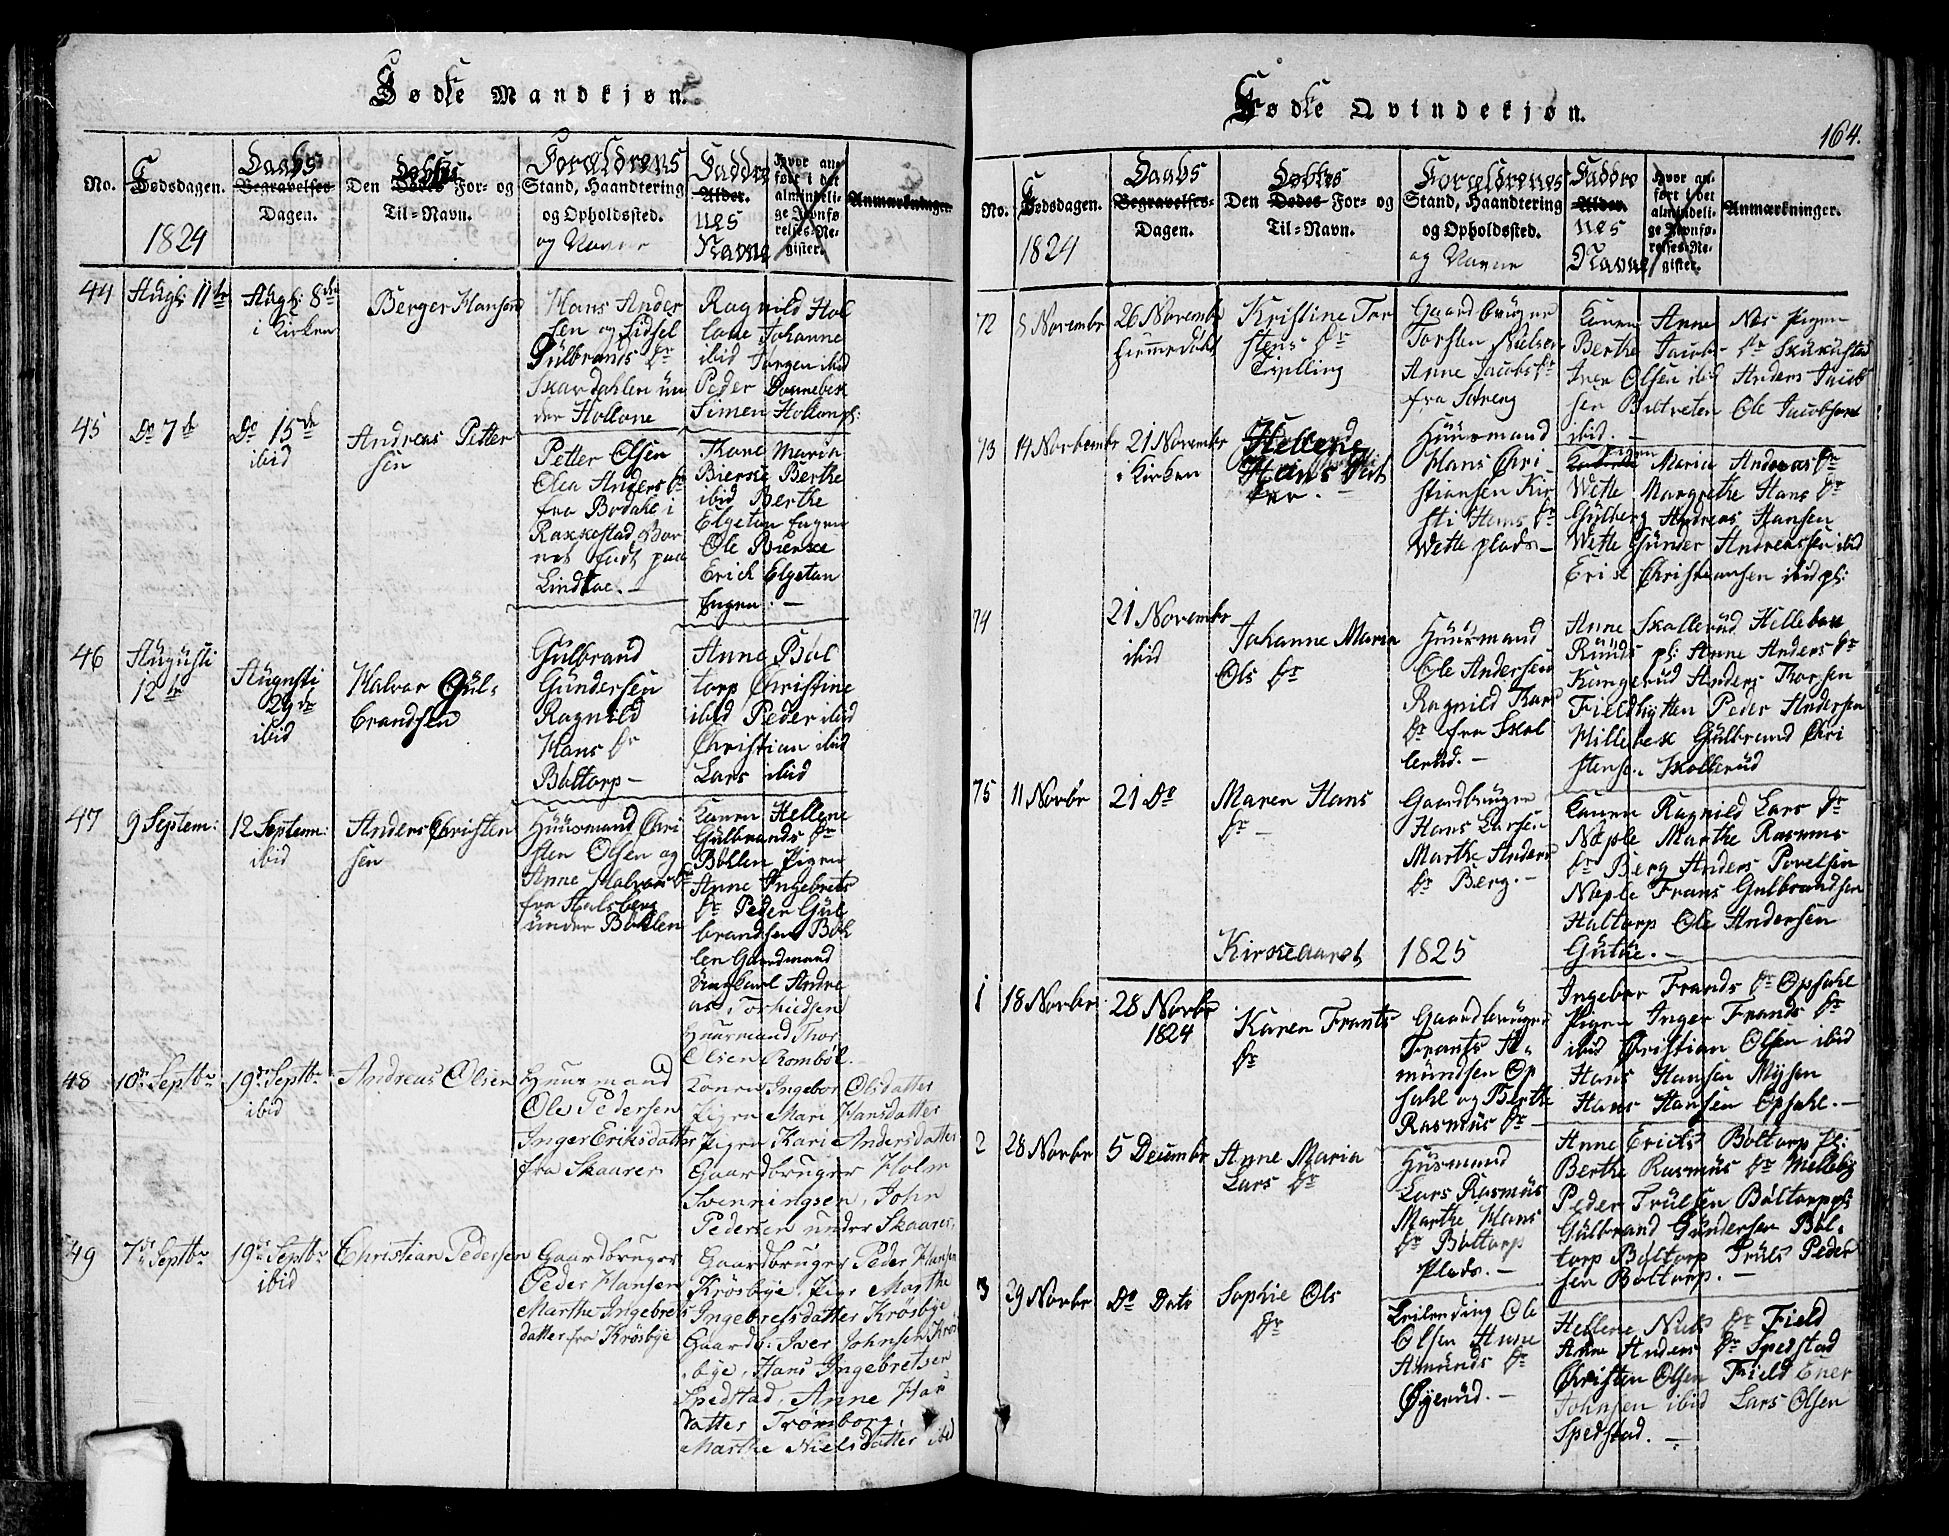 Fødte Mandkjøn.
No.
Fødsdagen.
1824
Daabs
Begravelses-
Dagen.
Den Døbtes Dødes For- og
Til-Navn.
Forældrenes
Stand, Haandtering
og Opholdssted.
og Navne
Faddre
Alder.
nes
Navne
Hvor an-
ført i det
almindeli-
ge Jevnfø-
relses-Re-
gister.
Anmærkninger.
44
Augst: 11te
Augst: 8de
i Kirken
Berger Hansen
Hans Ander
sen og Sidsel
Gulbrands Dr
Skardahlen un
der Hollone
Ragnild Hol
lone Johanne
ibid Jørgen ibid
Peder Dannebek
Simen Hollonpl:
45
Do 7de
Do 15de
ibid
Andreas Petter
sen
Petter Olsen
Olea Anders Dr
fra Bodahl i
Rakkestad Bar
net født paa
Lindtoe. —
Kone Maria
Bierke Berthe
ibid Berthe
Elgetun Engen
Ole Bierke
Erich Elgetun
Engen. —
46
Augusti
12te
Augusti
29de
ibid
Halvor Gul-
brandsen
Gulbrand
Gundersen
Ragnild
Hans Dr
Boltorp —
Anne Bøl
torp Christine
ibid Peder ibid
Christian ibid
Lars ibid
47
9 Septem:
12 Septem:
ibid
Anders Christen
sen
Huusmand Chri
sten Olsen og
Anne Halvors Dr
fra Halsberg
under Bøhlen
Konen Hellene
Gulbrands Dr
Bøhlen Pigen
Anne Ingebrets
Dr Peder Gul
brandsen Bøh
len Gaardmand
Ungkarl Andre
as Torkildsen
Huusmand Thor
Olsen Rombøl.
48
10de Septbr
19de Septbr
ibid
Andreas Olsen
Huusmand
Ole Pedersen
Inger Eriksdatter
fra Skaarer
Konen Ingebor Olsdatter
Pigen Mari Hansdatter
Pigen Kari Andersdatter
Gaardbruger Holm
Svenningsen, John
Pedersen under Skaarer.
49
7de Septbr
19de Septbr
ibid
Christian Pedersen
Gaardbruger
Peder Hansen
Marthe Ingebrets
datter fra Krosbye
Gaardbruger Peder Hansen
Krosbye, Pige Marthe
Ingebretsdatter Krosbye
Gaardb: Iver Johnsen Kros
bye, Hans Ingebretsen
Spedstad, Anne Har
datter Trömborg,
Marthe Nielsdatter ibid
Fødte Qvindekjøn.
164.
No.
Fødsdagen.
1824
Daabs
Begravelses-
Dagen.
Den Døbtes Dødes For- og
Til-Navn.
Forældrenes
Stand, Haandtering
og Opholdssted.
og Navne
Faddre
Alder.
nes
Navne
Hvor an-
ført i det
almindeli-
ge Jevnfø-
relses-Re-
gister.
Anmærkninger.
72
5 Novembr
26 Novembr
hiemmedøbt
Kristine Tor
stens Dr
Tvilling
Gaardbruger
Torsten Nielsen
Anne Jacobs Dr
fra Soreng
Konen Anne Næs Pigen
Berthe Jacobs Dr Skukustad
Iver Olsen ibid Anders Jacob
sen Butreten Ole Jacobsen
ibid. —
73
14 Novbembr
21 Novembr
i Kirken
Hellene
Hans Dat
ter. —
Huusmand
Hans Chri
stiansen Kir
sti Hans Dr
Wette plads —
Pigen Maria Andreas Dr
Wette Margrethe Hans Dr
Gulberg Andreas Hansen
Wette Gunder Andreassen ibid
Erik Christiansen ibid pl:
74
21 Novembr
ibid
Johanne Maria
Ols Dr
Huusmand
Ole Andersen
Ragnild Thors
Dr fra Skol
lerud. —
Anne Skollerud Hellebek
Runds pl: Anne Anders Dr
Kangerud Anders Thorsen
Fieldhytten Peder Andersen
Millebek Gulbrand Chri
stense. Skollerud
75
11 Novbr
21 Do
Maren Hans
Dr —
Gaardbruger
Hans Larsen
Marthe Anders
Dr Berg. —
Konen Ragnild Lars Dr
Næple Marthe Rasmus
Dr Berg Anders Povelsen
Næple Frans Gulbrandsen
Haltorp Ole Andersen
Guthe. —
Kirkeaaret 1825
1
18 Novbr
28 Novbr
1824
Karen Frants
Dr
Gaardbruger
Frants A-
mundsen Op
sahl og Berthe
Rasmus Dr —
Ingebor Frands Dr Opsahl
Pigen Inger Frands Dr
ibid Christian Olsen ibid
Hans Hansen Mysen
Hans Hansen Opsahl. —
2
28 Novbr
5 Decembr
Anne Maria
Lars Dr
Husmand
Lars Rasmus
Marthe Hans
Dr Boltorp
Plads. —
Anne Ericks Böltorp pl:
Berthe Rasmus Dr Mellebÿ
Peder Trulsen Böltorp pl:
Gulbrand Gundersen Böl-
torp Böltorp Truls Peder
sen Böltorp. —
3
29 Novbr
Do Dato
Sophie Ols
Dr
Leilending Ole
Olsen Anne
Amunds Dr
Øyerud. —
Hellene Niels Dr Field
Anne Anders Dr Spedstad
Christen Olsen Field Ener
Johnsen ibid Lars Olsen
Spedstad. —